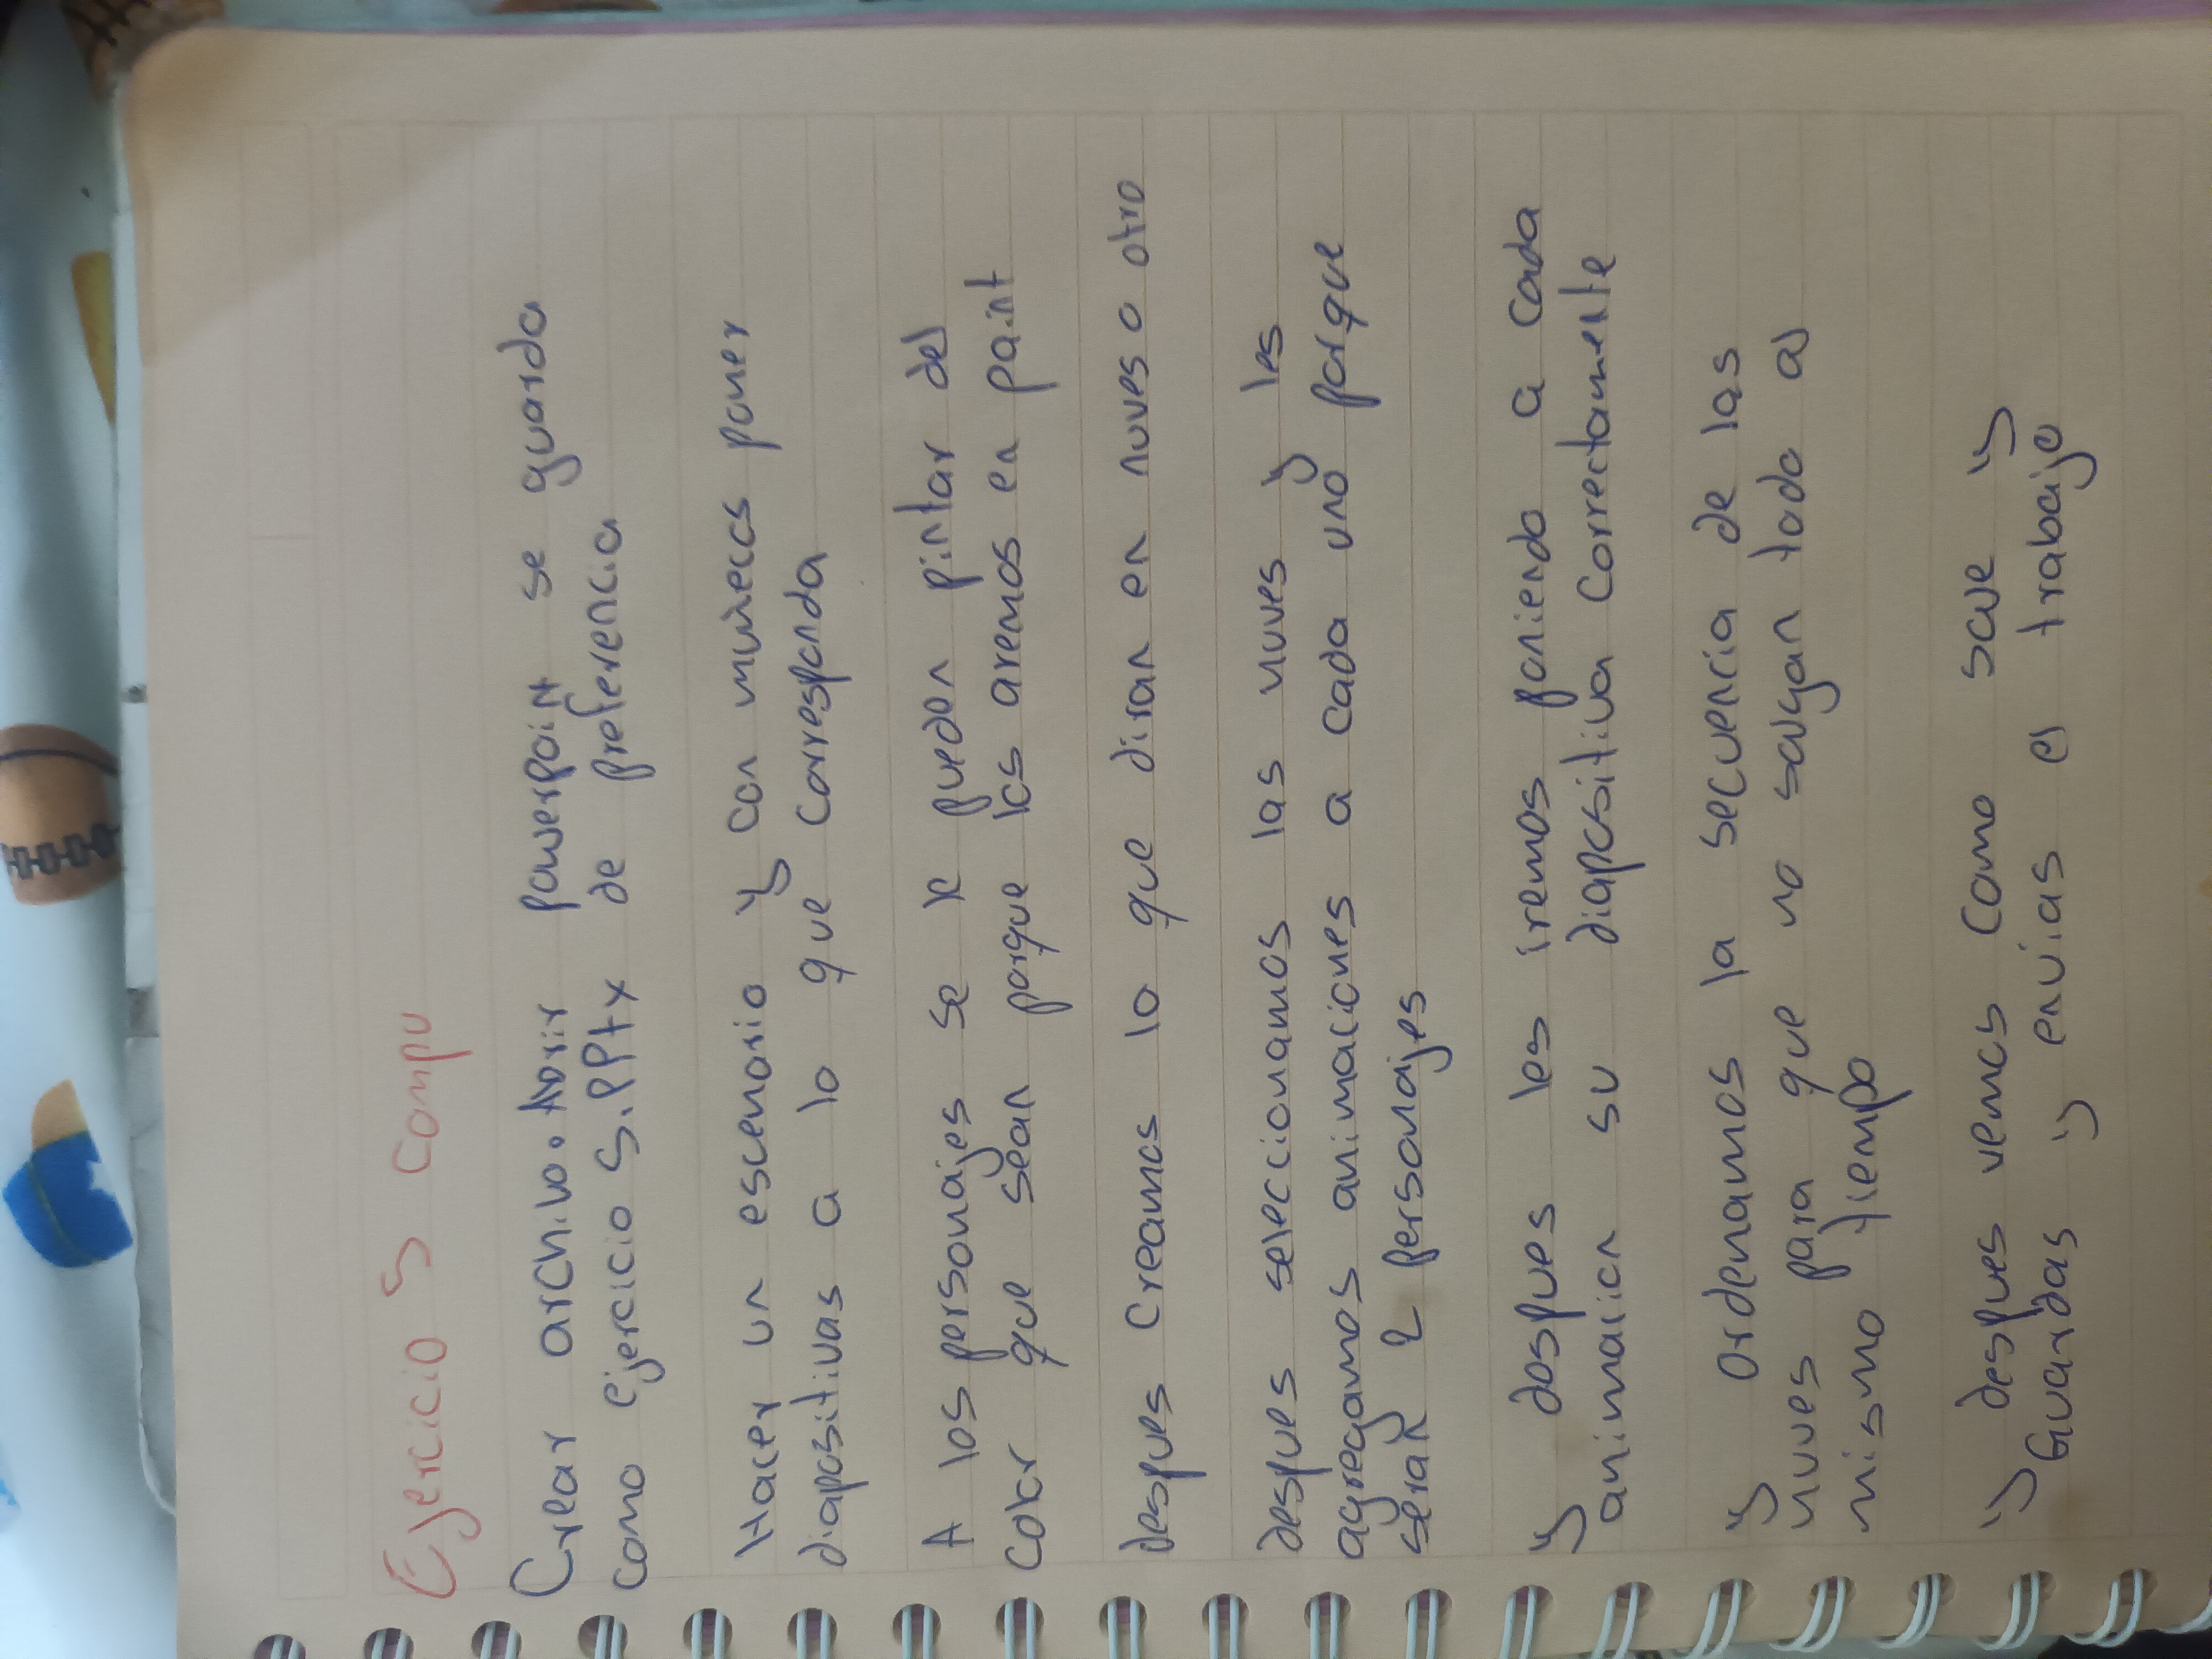 Ejercicio 5 Compu
Crear archivo. Abrir powerpoint se guarda
como ejercicio 5.PPtx de preferencia
Hacer un escenario y con muñecos poner
diapositivas a lo que corresponda
A los personajes se le pueden pintar del
color que sean porque los aremos en paint
despues creamos lo que diran en nuves o otro
despues seleccionamos las nuves y les
agregamos animaciones a cada uno porque
seran 2 personajes
y despues les iremos poniendo a cada
animacion su diapositiva correctamente
y ordenamos la secuencia de las
nuves para que no salgan todo al
mismo tiempo
y despues vemos como sale y
Guardas y envias el trabajo